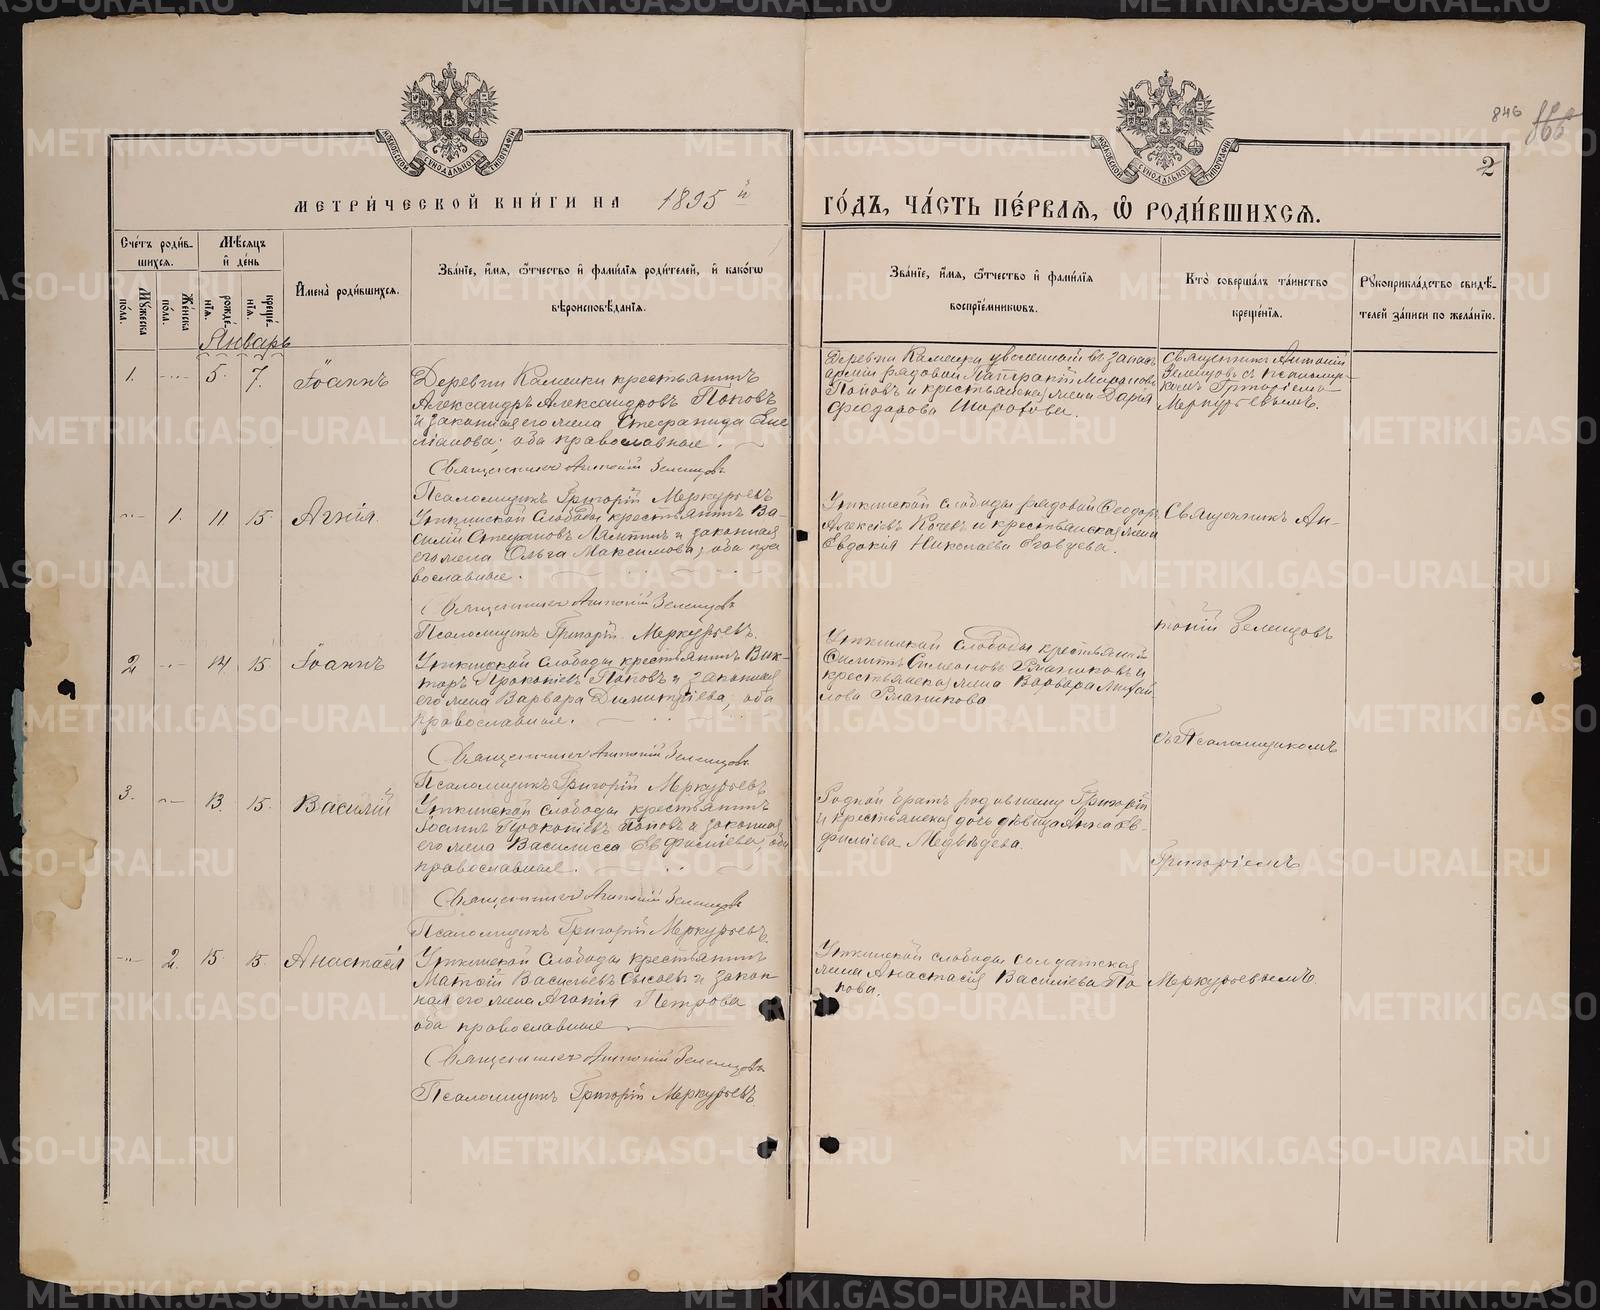 846
866
2
МОСКОВСКОЙ СУНОДАЛЬНОЙ ТИПОГРАФІИ
МОСКОВСКОЙ СУНОДАЛЬНОЙ ТИПОГРАФІИ
МЕТРИ́ЧЕСКОЙ КНИ́ГИ НА 1895 й
ГО́ДЪ, ЧА́СТЬ ПЕ́РВАЯ, Ѡ РОДИ́ВШИХСѦ.
Сче́тъ роди́в-
шихсѧ.
Мꙋжеска по́ла.
Же́нска по́ла.
Мѣ́сѧцъ
и҆ де́нь
рожде́-
нїѧ.
креще́-
нїѧ.
И҆мена̀ роди́вшихсѧ.
Зва́нїе, и҆́мѧ, ѻ҆́тчество и҆ фами́лїѧ роди́телей, и҆ како́гѡ
вѣроисповѣ́данїѧ.
Зва́нїе, и҆́мѧ, ѻ҆́тчество и҆ фами́лїѧ
воспрїе́мникѡвъ.
Кто̀ соверша́лъ та́инство
креще́нїѧ.
Рꙋкоприкла́дство свидѣ́-
телей за́писи по жела́нїю.
Январь
1. 5. 7. Іоаннъ
Деревни Каменки крестьянинъ
Александръ Александровъ Поповъ
и законная его жена Стефанида Еме
ліанова; оба православные.
Священникъ Антоній Зеленцовъ
Псаломщикъ Григорій Меркурьевъ
Деревни Каменки уволенный въ запасъ
арміи рядовой Патракій Мироновъ
Поповъ и крестьянская жена Дарья
Феодорова
Священникъ Антоній
Зеленцовъ съ псаломщи-
комъ Григоріемъ
Меркурьевымъ.
1. 11. 15. Агнія.
Уткинской Слободы крестьянинъ Ва-
силій Стефановъ и законная
его жена Ольга Максимова; оба пра
вославные.
Священникъ Антоній Зеленцовъ
Псаломщикъ Григорій Меркурьевъ.
Уткинской слободы рядовой Феодоръ
Алексѣевъ и крестьянская жена
Евдокія Николаева
Священникъ Ан-
тоній Зеленцовъ
2 14. 15. Іоаннъ
Уткинской слободы крестьянинъ Вик-
торъ Прокопіевъ Поповъ и законная
его жена Варвара Димитріева, оба
православные.
Священникъ Антоній Зеленцовъ
Псаломщикъ Григорій Меркурьевъ
Уткинской слободы крестьянинъ
Симеоновъ и
крестьянская жена Варвара Михай
лова
съ Псаломщикомъ
3. 13. 15. Василій
Уткинской слободы крестьянинъ
Іоаннъ Прокопіевъ Поповъ и законная
его жена Василисса Евфиміева, оба
православные.
Священникъ Антоній Зеленцовъ
Псаломщикъ Григорій Меркурьевъ.
Родной братъ родившему Григорій
и крестьянская дочь дѣвица Анна Ев-
фиміева Медвѣдева.
Григоріемъ
2. 15. 15. Анастасія
Уткинской Слободы крестьянинъ
Матѳій Васильевъ Сысоевъ и закон-
ная его жена Агапія Петрова
оба православные
Священникъ Антоній Зеленцовъ
Псаломщикъ Григорій Меркурьевъ.
Уткинской слободы солдатская
жена Анастасія Василіева По
пова.
Меркурьевымъ.
METRIKI.GASO-URAL.RU